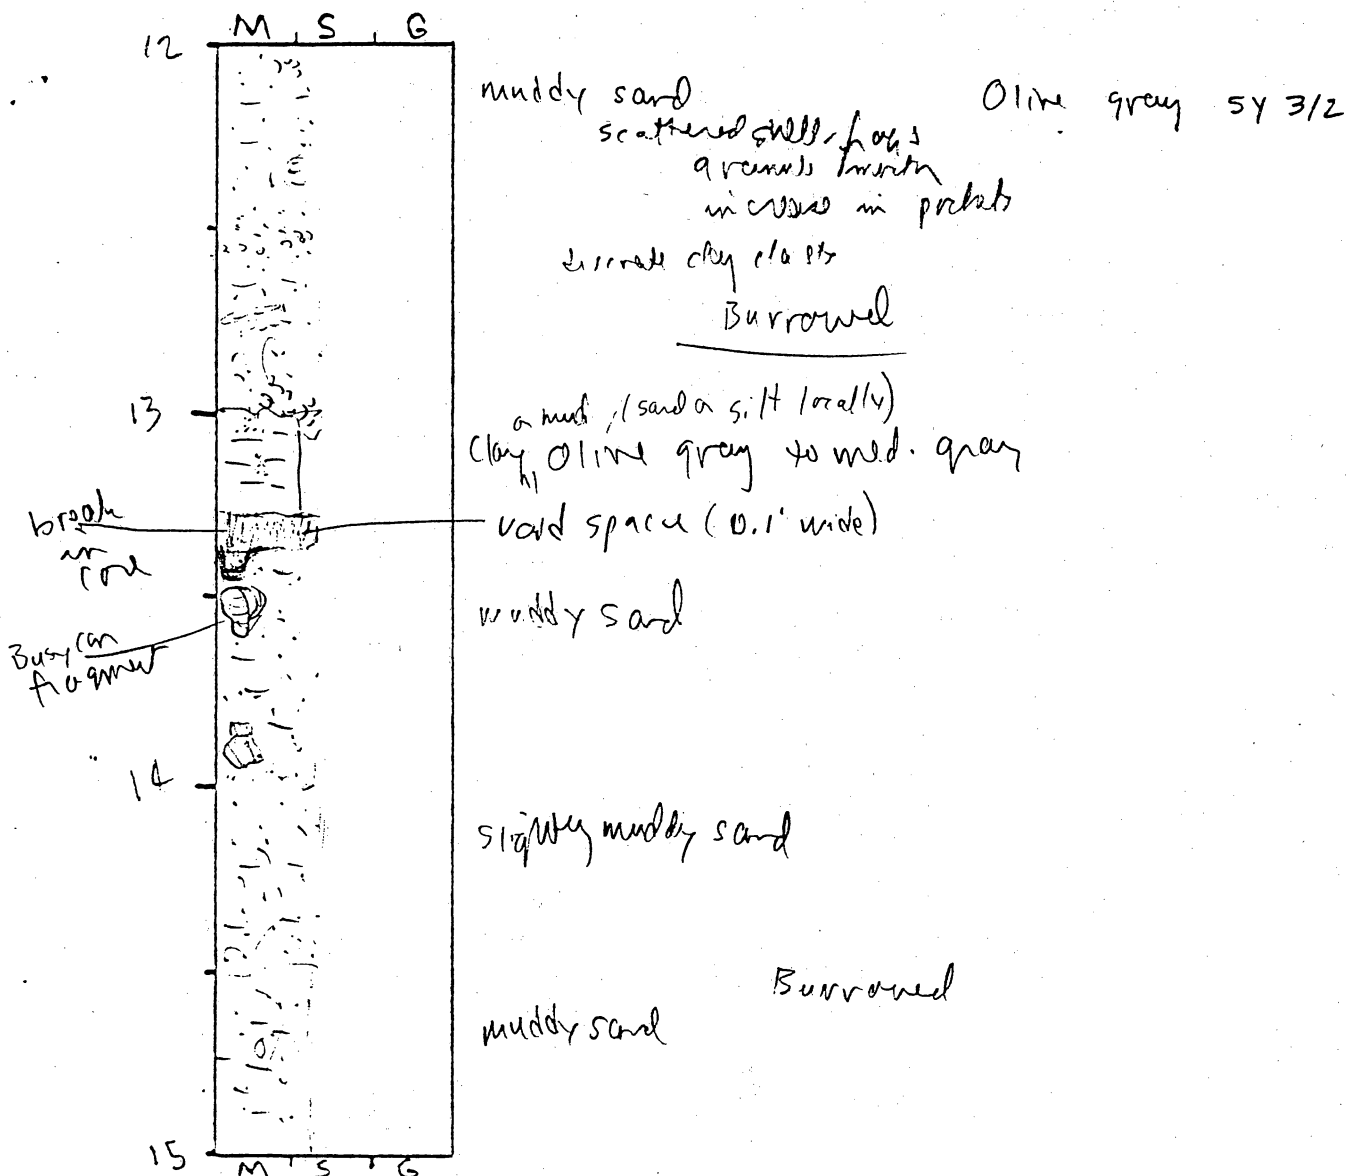 M S G
12
muddy sand
Olive gray 5Y 3/2
scattered shell frags
increase in pockets
discrete clay clasts
Burrowed
13
or mud, (sand or silt locally)
Clay, Olive gray to med. gray
break
in
core
void space (0.1' wide)
muddy sand
Busycan
fragment
14
slightly muddy sand
Burrowed
muddy sand
15
M S G